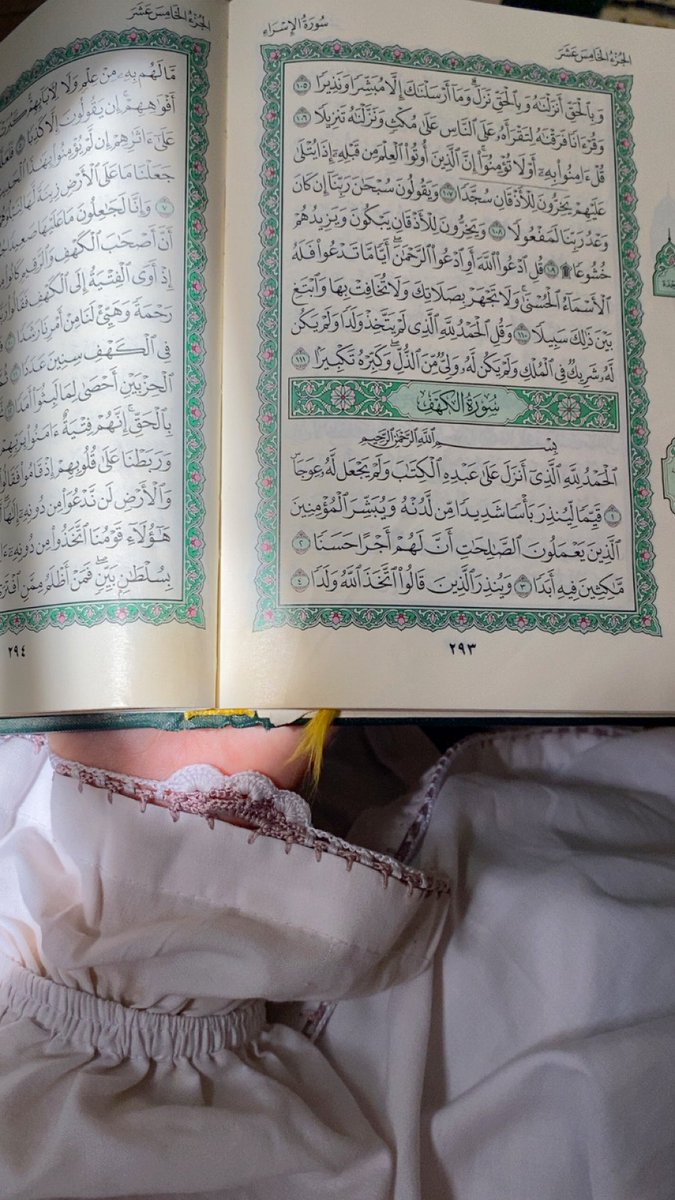 الجزء الخامس عشر
سورة الإسراء
وَبِالْحَقِّ أَنزَلْنَٰهُ وَبِالْحَقِّ نَزَلَ وَمَآ أَرْسَلْنَٰكَ إِلَّا مُبَشِّرًا وَنَذِيرًا ١٠٥
وَقُرْءَانًا فَرَقْنَٰهُ لِتَقْرَأَهُۥ عَلَى النَّاسِ عَلَىٰ مُكْثٍ وَنَزَّلْنَٰهُ تَنزِيلًا ١٠٦
قُلْ ءَامِنُوا بِهِۦٓ أَوْ لَا تُؤْمِنُوٓا إِنَّ الَّذِينَ أُوتُوا الْعِلْمَ مِن قَبْلِهِۦٓ إِذَا يُتْلَىٰ
عَلَيْهِمْ يَخِرُّونَ لِلْأَذْقَانِ سُجَّدًا ١٠٧ وَيَقُولُونَ سُبْحَٰنَ رَبِّنَآ إِن كَانَ
وَعْدُ رَبِّنَا لَمَفْعُولًا ١٠٨ وَيَخِرُّونَ لِلْأَذْقَانِ يَبْكُونَ وَيَزِيدُهُمْ
خُشُوعًا ۩ ١٠٩ قُلِ ادْعُوا اللَّهَ أَوِ ادْعُوا الرَّحْمَٰنَ أَيًّا مَّا تَدْعُوا فَلَهُ
الْأَسْمَآءُ الْحُسْنَىٰ وَلَا تَجْهَرْ بِصَلَاتِكَ وَلَا تُخَافِتْ بِهَا وَابْتَغِ
بَيْنَ ذَٰلِكَ سَبِيلًا ١١٠ وَقُلِ الْحَمْدُ لِلَّهِ الَّذِى لَمْ يَتَّخِذْ وَلَدًا وَلَمْ يَكُن
لَّهُۥ شَرِيكٌ فِى الْمُلْكِ وَلَمْ يَكُن لَّهُۥ وَلِىٌّ مِّنَ الذُّلِّ وَكَبِّرْهُ تَكْبِيرًا ١١١
سورة الكهف
بسم الله الرحمن الرحيم
الْحَمْدُ لِلَّهِ الَّذِىٓ أَنزَلَ عَلَىٰ عَبْدِهِ الْكِتَٰبَ وَلَمْ يَجْعَل لَّهُۥ عِوَجَا
١ قَيِّمًا لِّيُنذِرَ بَأْسًا شَدِيدًا مِّن لَّدُنْهُ وَيُبَشِّرَ الْمُؤْمِنِينَ
الَّذِينَ يَعْمَلُونَ الصَّٰلِحَٰتِ أَنَّ لَهُمْ أَجْرًا حَسَنًا ٢
مَّٰكِثِينَ فِيهِ أَبَدًا ٣ وَيُنذِرَ الَّذِينَ قَالُوا اتَّخَذَ اللَّهُ وَلَدًا ٤
٢٩٣
الجزء الخامس عشر
مَّا لَهُم بِهِۦ مِنْ عِلْمٍ وَلَا لِءَابَآئِهِمْ كَبُرَتْ
أَفْوَٰهِهِمْ إِن يَقُولُونَ إِلَّا كَذِبًا ٥
عَلَىٰٓ ءَاثَٰرِهِمْ إِن لَّمْ يُؤْمِنُوا بِهَٰذَا الْحَدِيثِ
جَعَلْنَا مَا عَلَى الْأَرْضِ زِينَةً لَّهَا
٧ وَإِنَّا لَجَٰعِلُونَ مَا عَلَيْهَا صَعِيدًا
أَنَّ أَصْحَٰبَ الْكَهْفِ وَالرَّقِيمِ كَانُوا
إِذْ أَوَى الْفِتْيَةُ إِلَى الْكَهْفِ فَقَالُوا
رَحْمَةً وَهَيِّئْ لَنَا مِنْ أَمْرِنَا رَشَدًا
فِى الْكَهْفِ سِنِينَ عَدَدًا
الْحِزْبَيْنِ أَحْصَىٰ لِمَا لَبِثُوٓا أَمَدًا
بِالْحَقِّ إِنَّهُمْ فِتْيَةٌ ءَامَنُوا بِرَبِّهِمْ
وَرَبَطْنَا عَلَىٰ قُلُوبِهِمْ إِذْ قَامُوا فَقَالُوا
وَالْأَرْضِ لَن نَّدْعُوَا مِن دُونِهِۦٓ إِلَٰهًا
هَٰٓؤُلَآءِ قَوْمُنَا اتَّخَذُوا مِن دُونِهِۦٓ
بِسُلْطَٰنٍ بَيِّنٍ فَمَنْ أَظْلَمُ مِمَّنِ افْتَرَىٰ
٢٩٤